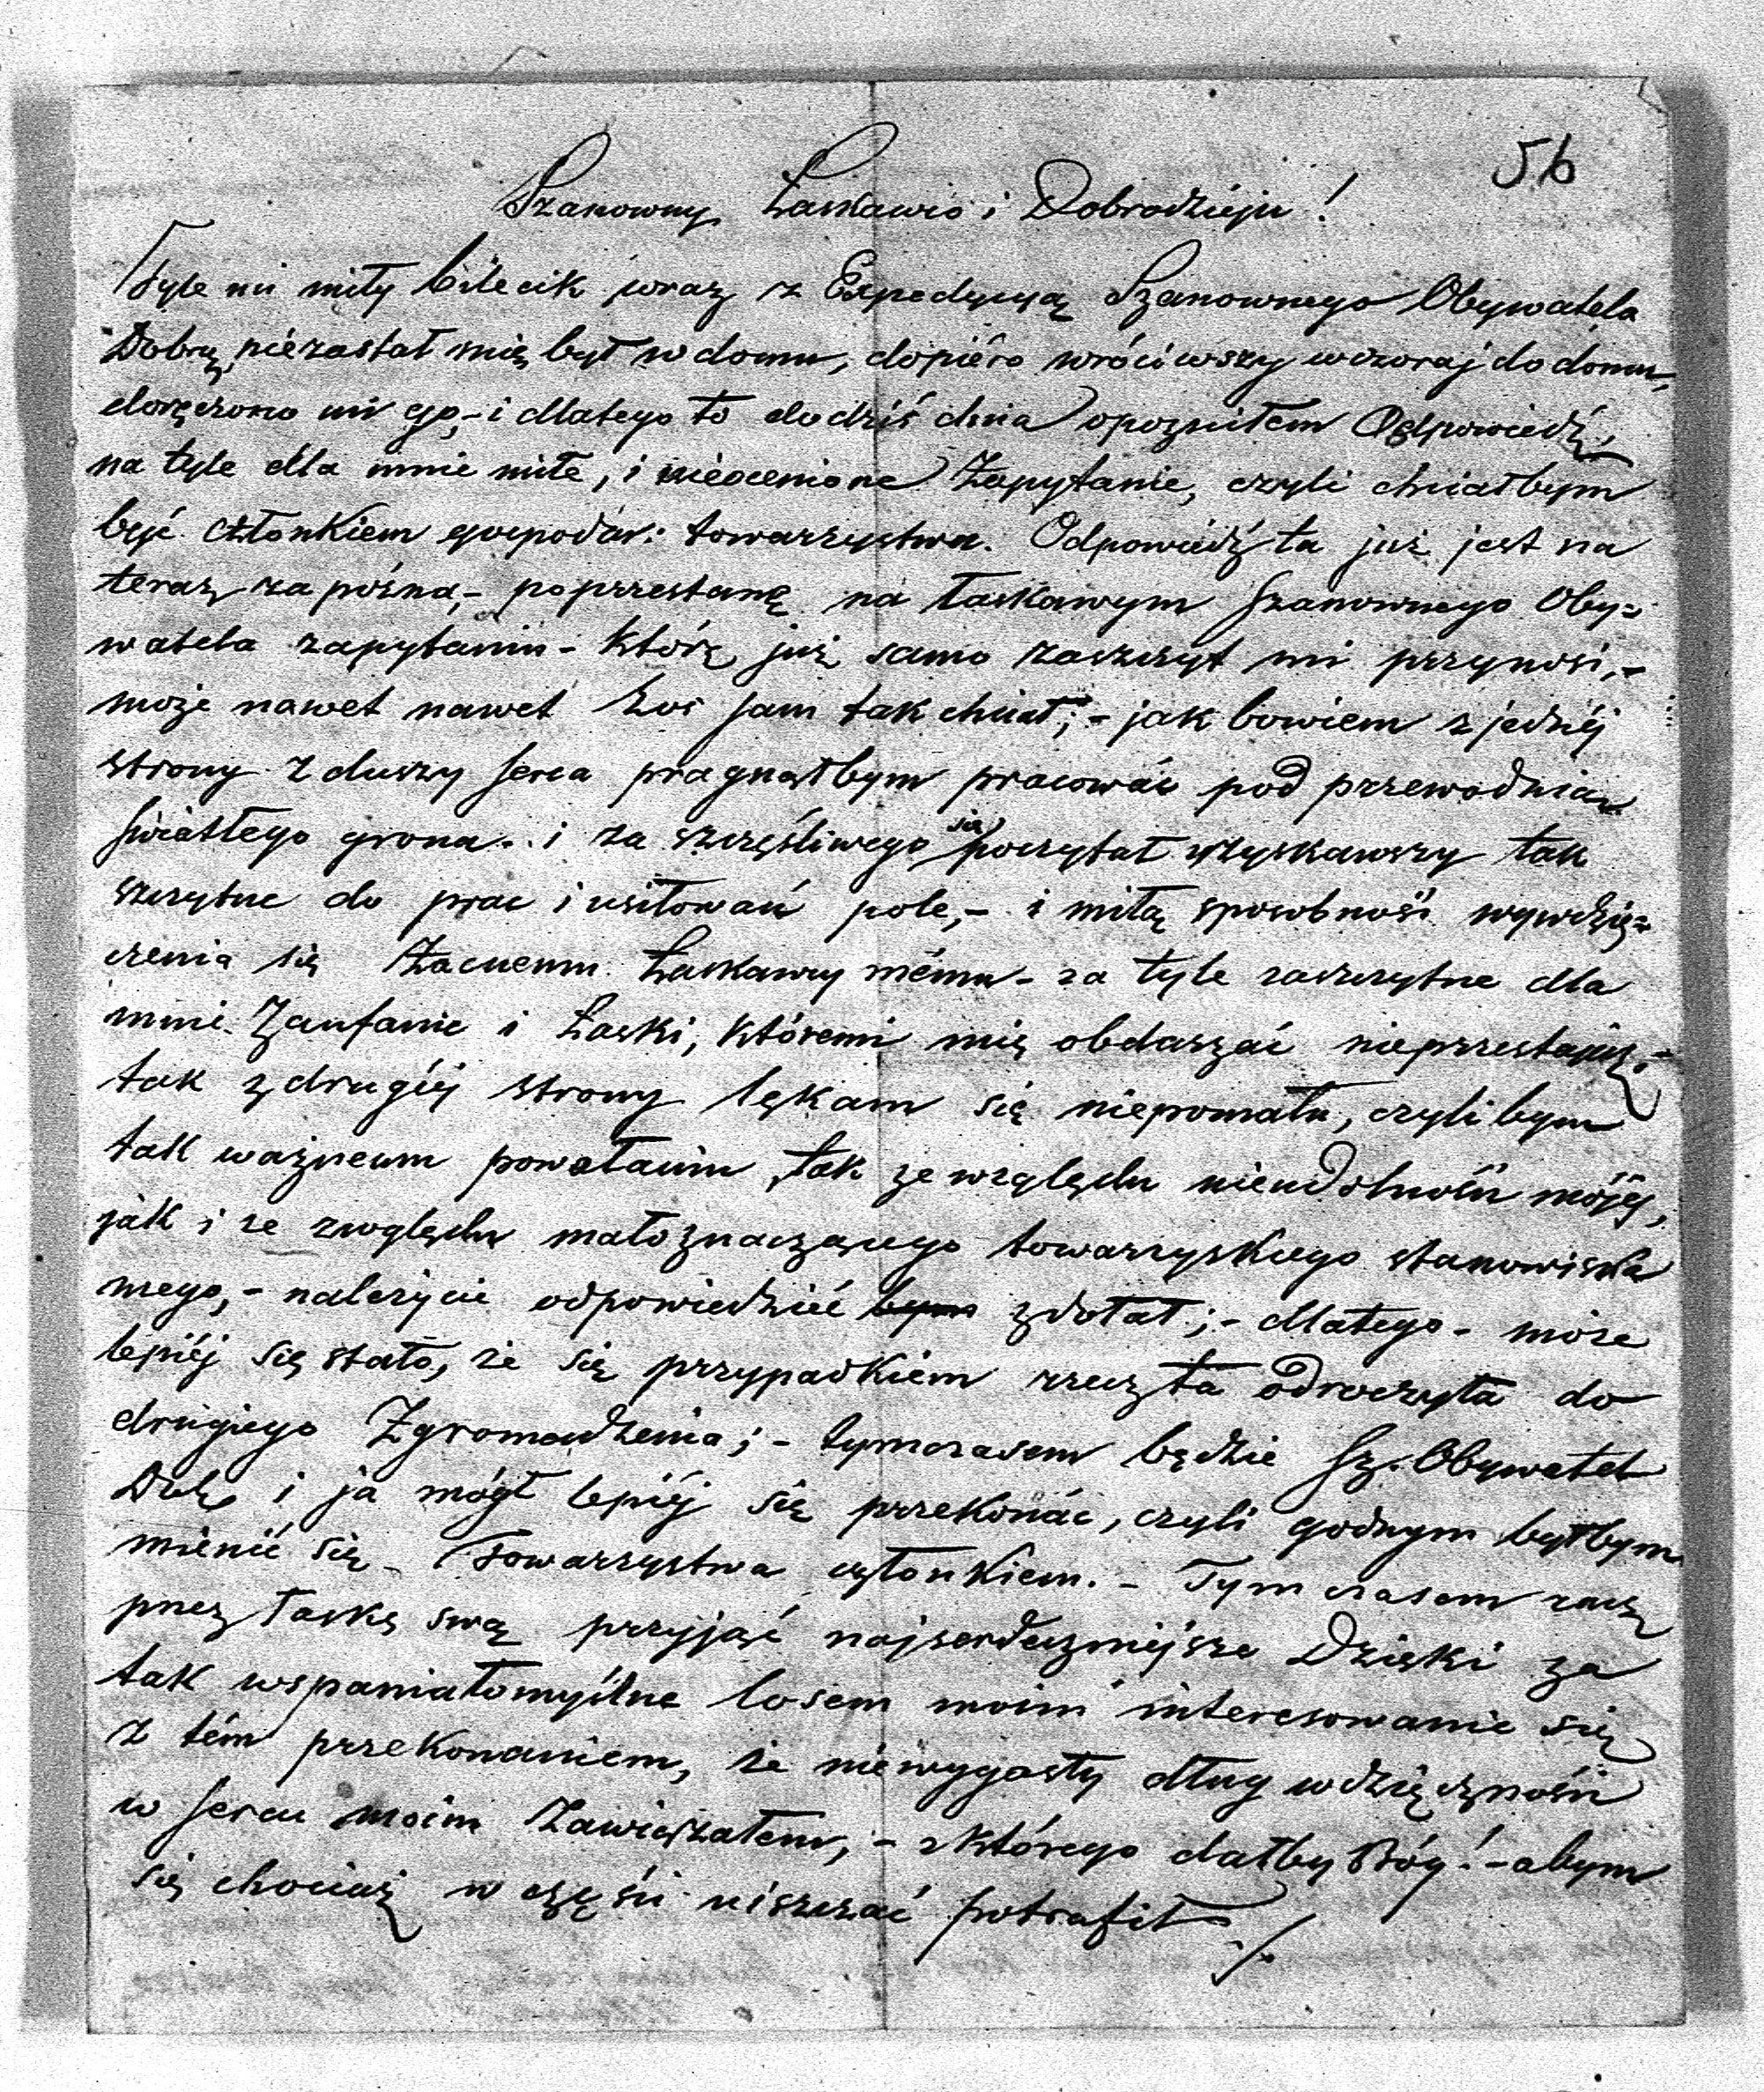 56
Szanowny Łaskawco i Dobrodzieju!
Tyle mi miły bilecik wraz z Expedycyą Szanownego Obywatela
Dobrz. niezastał mię był w domu, dopiéro wróciwszy wczoraj do domu,
doręczono mi go,- i dlatego to do dziś dnia opozniłem Odpowiedź,
na tyle dla mnie miłe, i nieocenione Zapytanie, czyli chciałbym
być członkiem gospodar: towarzystwa. Odpowiedź ta już jest na
teraz za pózna,- poprzestanę na łaskawym Szanownego Oby=
watela zapytaniu - któré już samo zaszczyt mi przynosi,-
może nawet nawet Los sam tak chciał;- jak bowiem z jednéj
strony z duszy serca pragnąłbym pracować pod przewodnic.
światłego grona. i za szczęśliwego się poczytał zyskawszy tak
szczytne do prac i usiłowań pole,- i miłą sposobność wywdzię=
czenia się Zacnemu Łaskawcy mému - za tyle zaszczytne dla
mnie Zaufanie i Łaski, któremi mię obdarzać nieprzestajesz,-
tak z drugiéj strony lękam się niepomału, czyli bym
tak ważnemu powołaniu, tak ze względu nieudolności mojéj,
jak i ze względu małoznaczącego towarzyskiego stanowiska
mego,- należycie odpowiedzieć bym zdołał;- dlatego - może
lepiéj się stało, że się przypadkiem rzecz ta odroczyła do
drugiego Zgromadzenia;- tymczasem będzie Sz. Obywatel
i ja mógł lepiéj się przekonać, czyli godnym byłbym
mienić się - Towarzystwa członkiem. - Tym czasem racz
przez łaskę swą przyjąć najserdeczniejsze Dzięki za
tak wspaniałomyślne losem moim interesowanie się
z tém przekonaniem, że niewygasły dług wdzięczności
w sercu moim zawiązałem,- z którego dałby Bóg! - abym
się chociaż w części uiszczać potrafił ./.